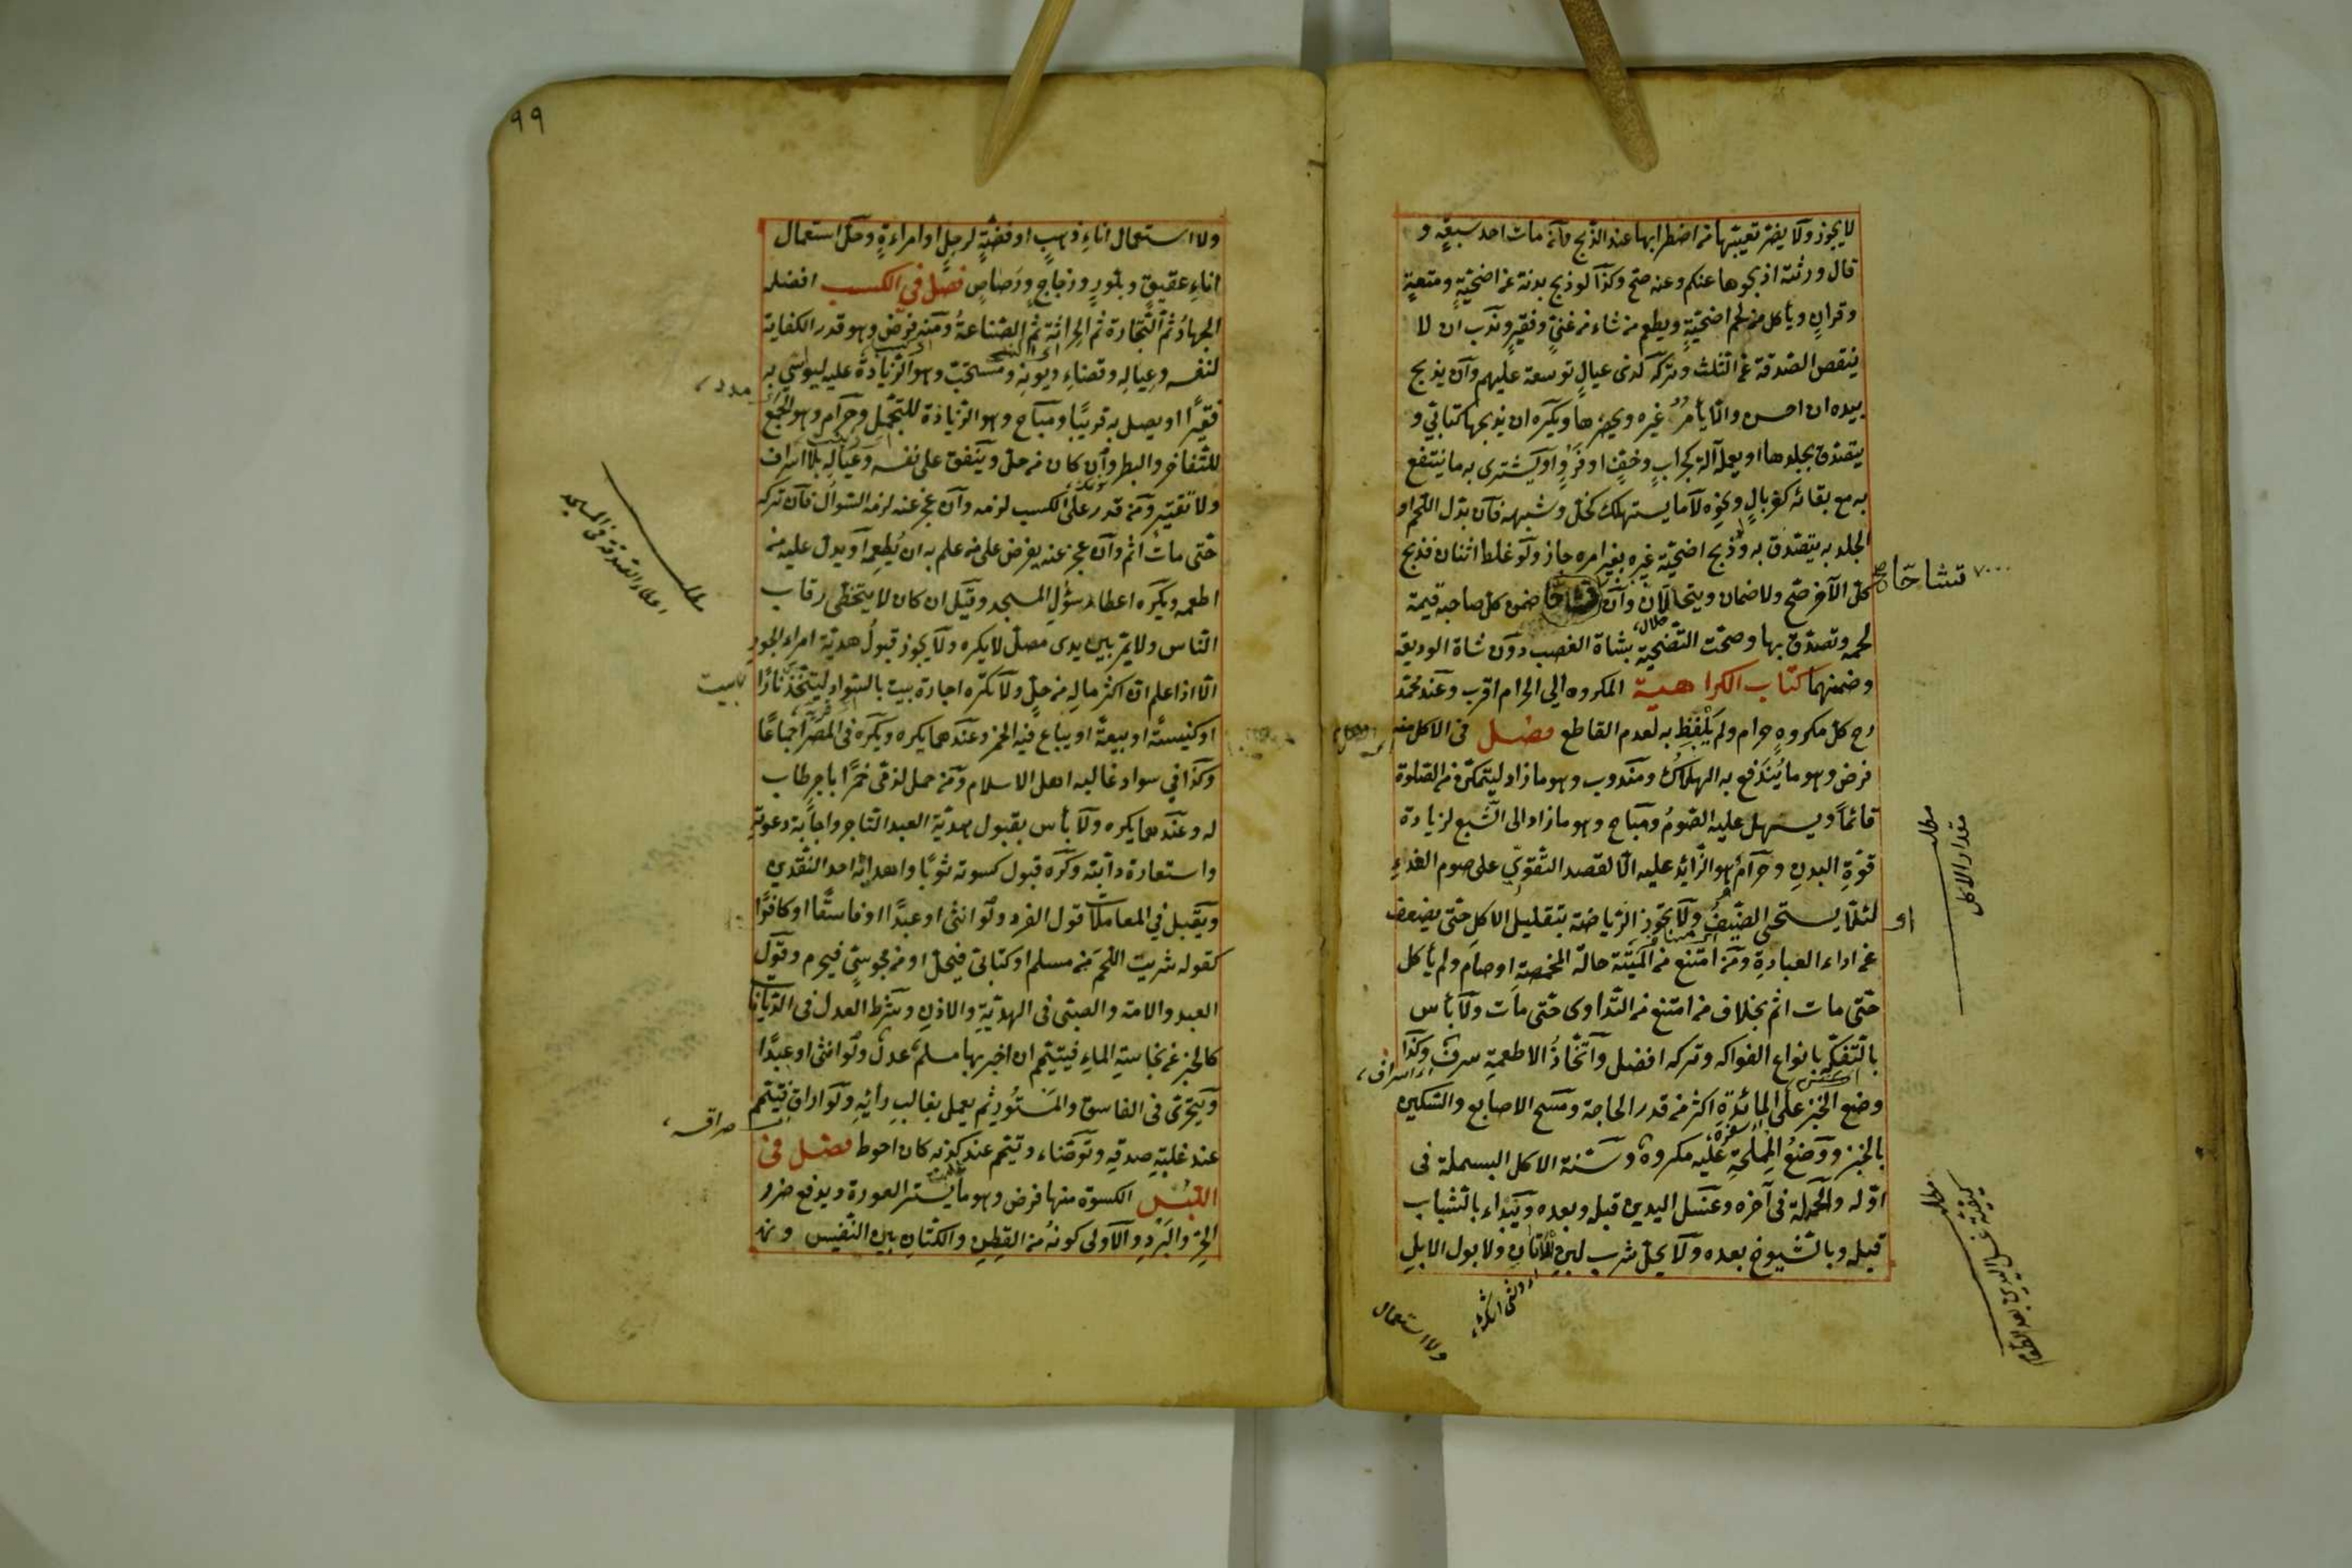 لا يجوز ولا يضر تعيبها من اضطرابها عند الذبح وان مات احد سبعة و
قال ورثته اذبحوها عنكم وعنه صح وكذا لو ذبح بدنة عن اضحية ومتعة
وقران ويأكل من لحم اضحية ويطعم من شاء من غني وفقير وندب ان لا
ينقص الصدقة عن الثلث وتركه لذى عيال توسعة عليهم وان يذبح
بيده ان احسن والا يأمر غيره ويحضرها ويكره ان يذبحها كتابي و
يتصدق بجلدها او يعمله آلة كجراب وخف او فرو او يشترى به ما ينتفع
به مع بقائه كغربال ونحوه لا ما يستهلك كخل وشبهه فان بدل اللحم او
الجلد به يتصدق به ولو ذبح اضحية غيره بغير امره جاز ولو غلط اثنان فذبح
كل الآخر صح ولا ضمان ويتحالان وان تشاحا ضمن كل صاحبه قيمة
تشاحا صح
لحمه وتصدق بها وصحت التضحية بشاة الغصب دون شاة الوديعة
وضمنهما كتاب الكراهية المكروه الى الحرام اقرب وعند محمد
رح كل مكروه حرام ولم يلفظ به لعدم القاطع فصل فى الاكل منه
فرض وهو ما يندفع به الهلاك ومندوب وهو ما زاد ليتمكن من الصلوة
قائما ويسهل عليه الصوم ومباح وهو ما زاد الى الشبع لزيادة
مطلب
مقدار الاكل
قوة البدن وحرام وهو الزائد عليه الا لقصد التقوى على صوم الغد
او لئلا يستحي الضيف ولا تجوز الرياضة بتقليل الاكل حتى يضعف
عن اداء العبادة ومن امتنع من الميتة حالة المخمصة او صام ولم يأكل
حتى مات اثم بخلاف من امتنع من التداوى حتى مات ولا بأس
بالتفكه بانواع الفواكه وتركه افضل واتخاذ الاطعمة سرف وكذا
وضع الخبز على المائدة اكثر من قدر الحاجة ومسح الاصابع والسكين
بالخبز ووضع المملحة عليه مكروه وسنة الاكل البسملة فى
اوله والحمدلة فى آخره وغسل اليدين قبله وبعده ويبداء بالشباب
قبله وبالشيوخ بعده ولا يحل شرب لبن الاتان ولا بول الابل
مطلب
كيفية غسل اليدين
ولا استعمال
٩٩
ولا استعمال اناء ذهب او فضة لرجل او امراءة وحل استعمال
اناء عقيق وبلور وزجاج ورصاص فصل في الكسب افضله
الجهاد ثم التجارة ثم الحراثة ثم الصناعة ومنه فرض وهو قدر الكفاية
لنفسه وعياله وقضاء ديونه ومستحب وهو الزيادة عليه ليواسي به
فقيرا او يصل به قريبا ومباح وهو الزيادة للتجمل وحرام وهو الجمع
للتفاخر والبطر وان كان من حل وينفق على نفسه وعياله بلا اسراف
ولا تقتير ومن قدر على الكسب لزمه وان عجز عنه لزمه السؤال فان تركه
حتى مات اثم وان عجز عنه يفرض على من علم به ان يطعمه او يدل عليه من
مطلب
اعطاء الصدقة فى المسجد
اطعمه ويكره اعطاء سؤل المسجد وقيل ان كان لا يتخطى رقاب
الناس ولا يمر بين يدى مصل لا يكره ولا يجوز قبول هدية امراء الجور
الا اذا علم ان اكثر ماله من حل ولا تكره اجارة بيت بالسواد ليتخذ نارا
او كنيسة او بيعة او يباع فيه الخمر وعندهما يكره ويكره فى المصر اجماعا
وكذا في سواد غالبه اهل الاسلام ومن حمل لذمى خمرا باجر طاب
له وعندهما يكره ولا بأس بقبول هدية العبد التاجر واجابة دعوته
واستعارة دابته وكره قبول كسوته ثوبا واهدائه احد النقدين
ويقبل في المعاملات قول الفرد ولو انثى او عبدا او فاسقا او كافرا
كقوله شريت اللحم من مسلم او كتابى فيحل او من مجوسي فيحرم وقول
العبد والامة والصبى فى الهدية والاذن وشرط العدل فى الديانات
كالخبر عن نجاسة الماء فيتيمم ان اخبر بها مسلم عدل ولو انثى او عبدا
ويتحرى فى الفاسق والمستور ثم يعمل بغالب رأيه ولو اراق فتيمم
عند غلبة صدقه وتوضاء وتيمم عند كذبه كان احوط فصل فى
اللبس الكسوة منها فرض وهو ما يستر العورة ويدفع ضرر
الحر والبرد والاولى كونه من القطن والكتان بين النفيس و